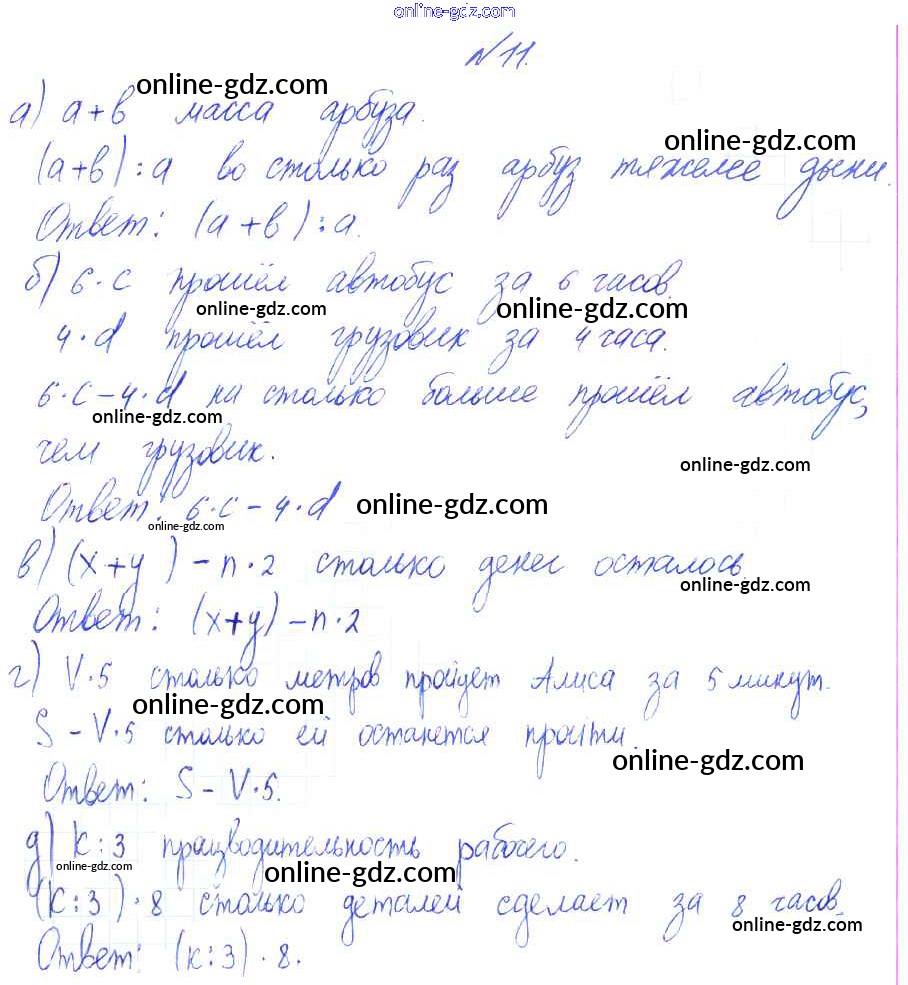 online-gdz.com
№ 11.
online-gdz.com
а) а+в масса арбуза.
online-gdz.com
(а+в):а во столько раз арбуз тяжелее дыни.
Ответ: (а+в):а.
б) 6·с прошёл автобус за 6 часов.
online-gdz.com online-gdz.com
4·d прошёл грузовик за 4 часа.
6·с-4·d на столько больше прошёл автобус,
online-gdz.com
чем грузовик.
online-gdz.com
Ответ: 6·с-4·d
online-gdz.com
online-gdz.com
в) (x+y)-n·2 столько денег осталось.
online-gdz.com
Ответ: (x+y)-n·2
г) V·5 столько метров пройдет Алиса за 5 минут.
online-gdz.com
S-V·5 столько ей останется пройти.
online-gdz.com
Ответ: S-V·5.
д) k:3 працзводительность рабочего.
online-gdz.com online-gdz.com
(k:3)·8 столько деталей сделает за 8 часов.
online-gdz.com
Ответ: (k:3)·8.